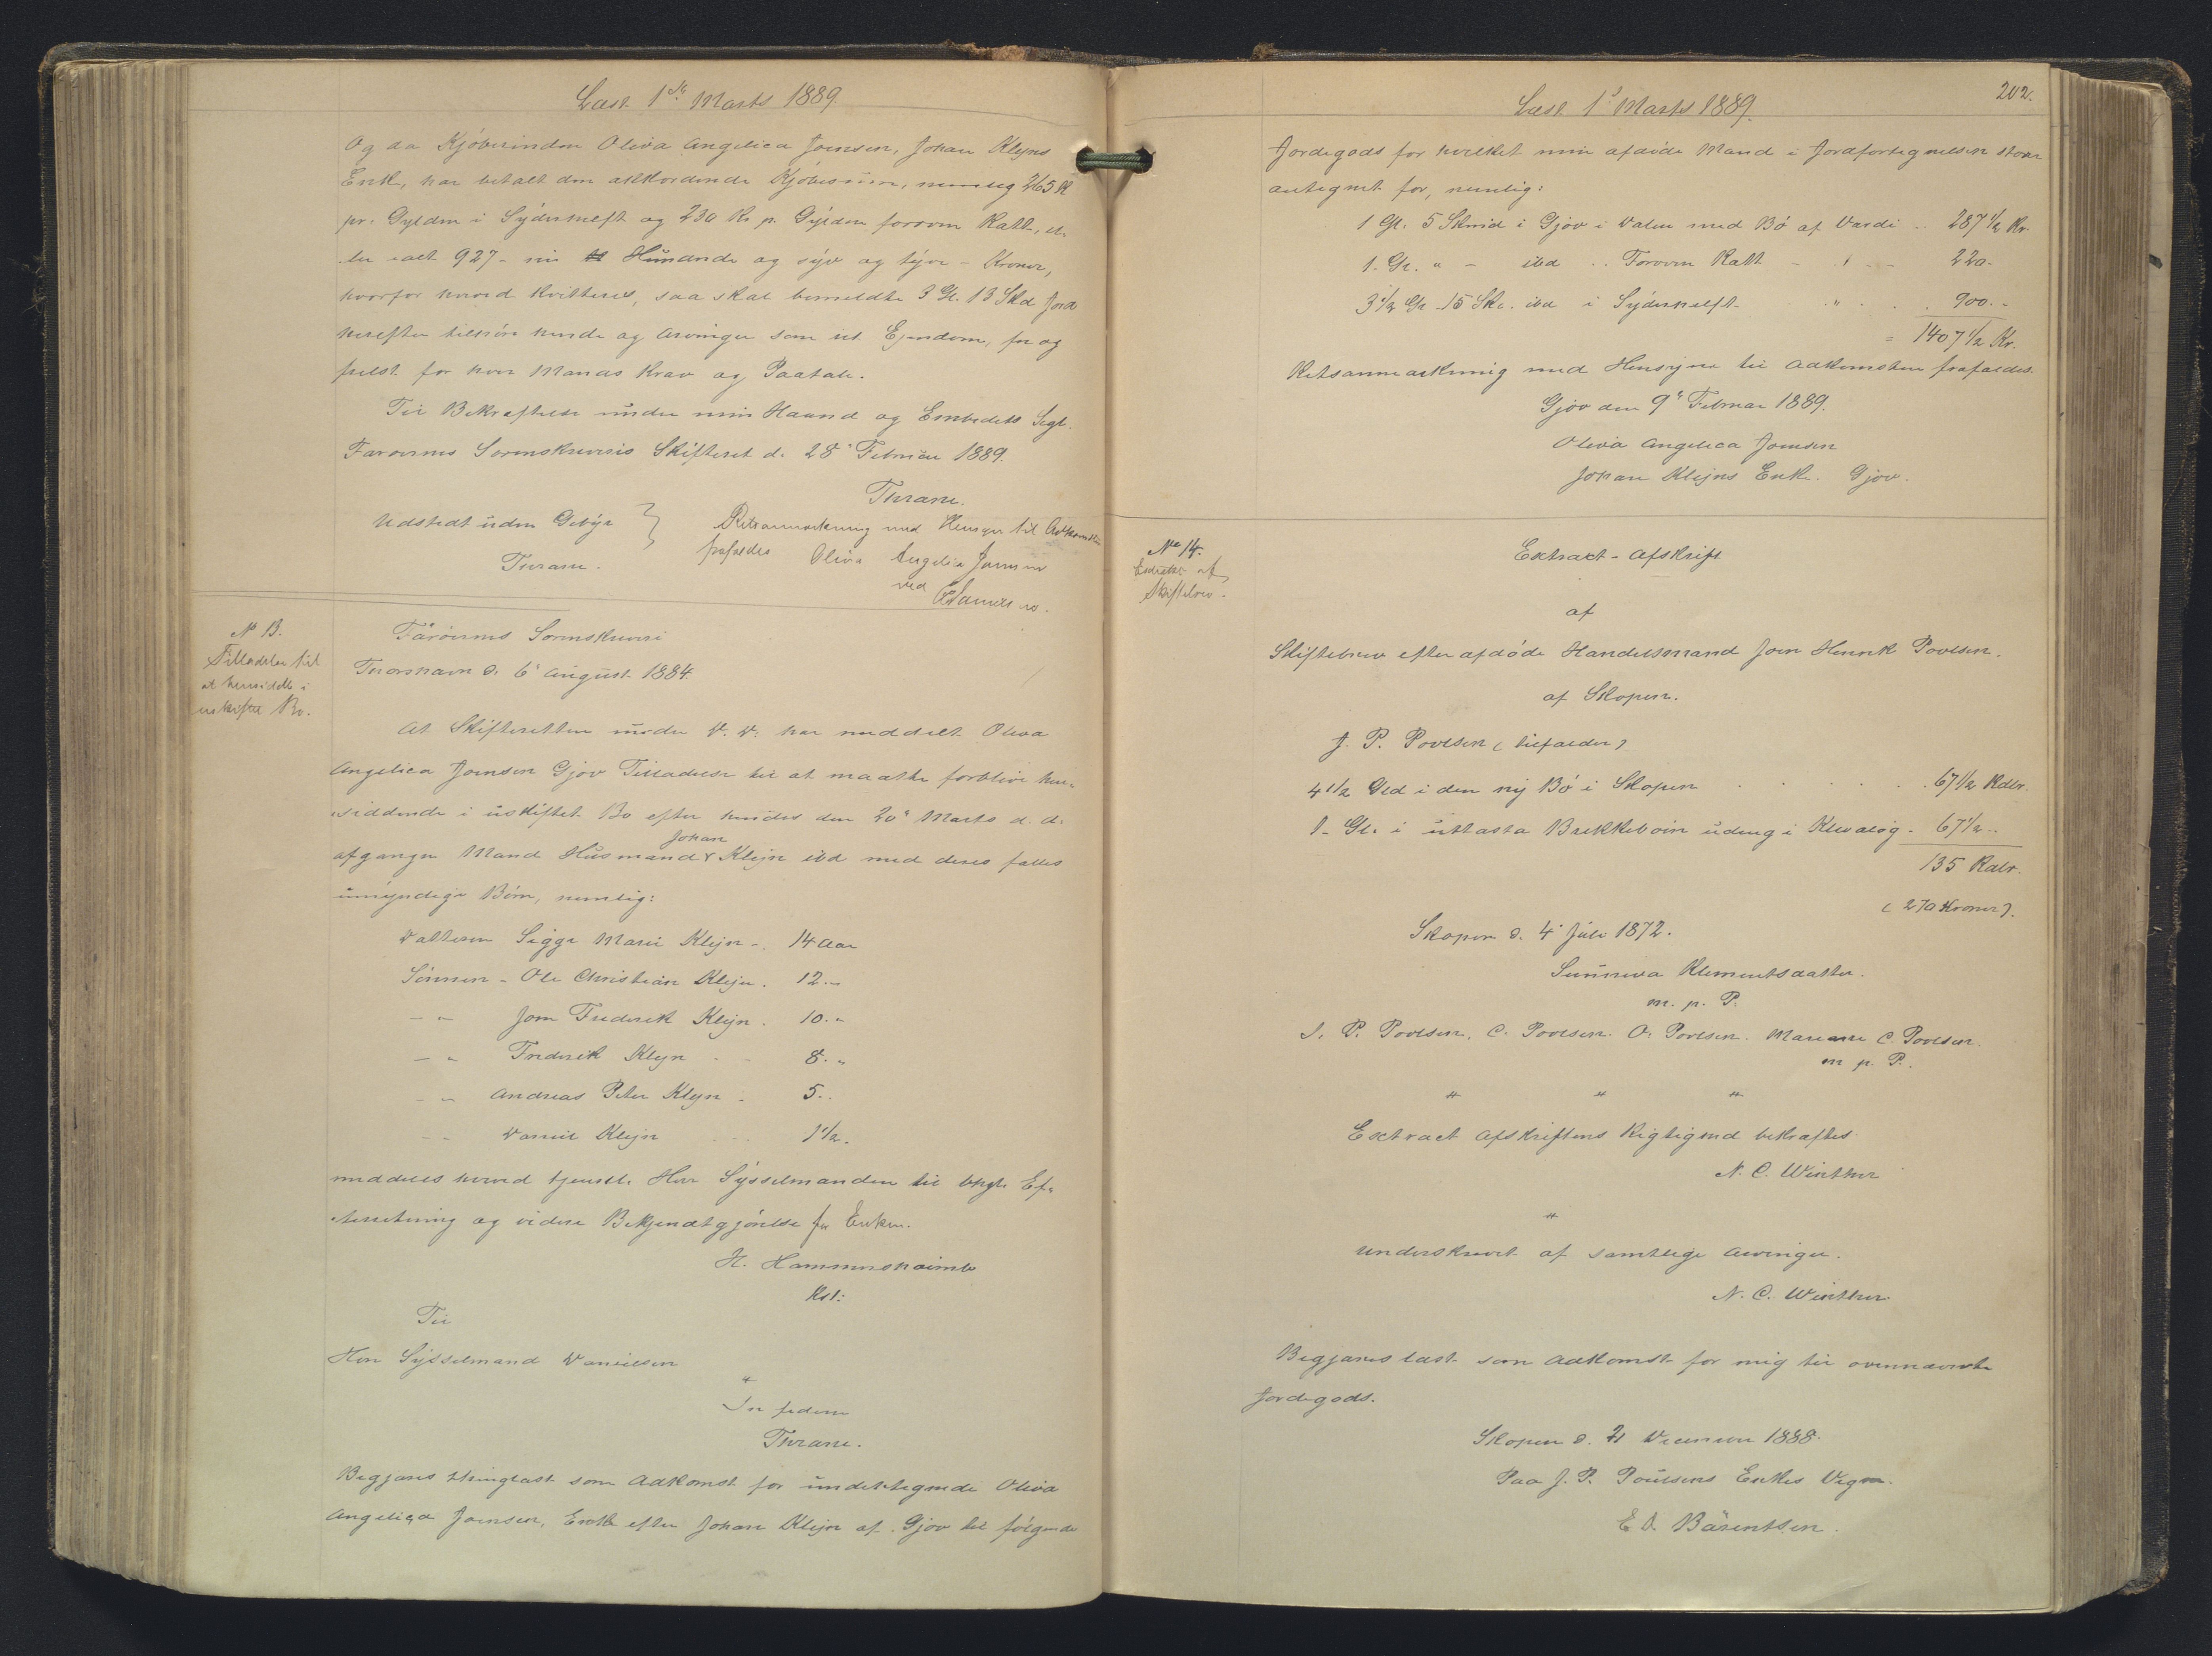 Læst 1ste Marts 1889.
Og da Kjøberinden Oliva Angelica Joensen, Johan Klejns
Enke, har betalt den akkorderede Kjøbesum, nemlig 265 Kr
pr. Gylden i Syderhelft og 230 Kr pr. Gylden foroven Katt, el-
ler ialt 927 - ni Hundrede og syv og tyve - Kroner,
hvorfor herved kvitteres, saa skal bemeldte 3 Gl. 13 Skd Jord
herefter tilhøre hende og Arvinger som ret Ejendom, fri og
frelst for hver Mands Krav og Paatale.
Til Bekræftelse under min Haand og Embedets Segl.
Færøernes Sorenskriveris Skifteret d. 28' Februar 1889.
Thrane.
Udstedt uden Gebyr }
Thrane.
Retsanmærkning med Hensyn til Adkomsten
frafaldes Oliva Angelica Joensen
ved
No 13.
Tilladelse til
at hensidde i
uskiftet Bo.
Færøernes Sorenskriveri
Thorshavn d. 6' August 1884.
At Skifteretten under D. D. har meddelt Oliva
Angelica Joensen Gjov Tilladelse til at maatte forblive hen-
siddende i uskiftet Bo efter hendes den 20' Marts d. A.
afgangne Mand Husmand Johan Klejn ibd med deres fælles
umyndige Børn, nemlig:
Datteren Sigga Marie Klejn - 14 Aar
Sønnen - Ole Christian Klejn . 12 -
- " Joen Frederik Klejn . 10 . "
- " Frederik Klejn - - 8 . "
- " Andreas Peter Klejn . 5 . .
- " Daniel Klejn . . . 1 1/2 .
meddeles herved tjenstl. Herr Sysselmanden til behgl. Ef-
terretning og videre Bekjendtgjørelse for Enken.
H. Hammershaimb
Kst:
Til
Herr Sysselmand Danielsen
"
In fidem
Thrane.
Begjæres thinglæst som Adkomst for undertegnede Oliva
Angelica Joensen, Enke efter Johan Klejn af Gjov til følgende
202.
Læst 1' Marts 1889.
Jordegods for hvilket min afdøde Mand i Jordfortegnelsen staar
antegnet for, nemlig:
1 Gl. 5 Skind i Gjov i Dalen med Bø af Værdi .. 287 1/2 Kr.
1 - Gl. " - ibd .. Forovon Katt - " - - 220 -
3 1/2 Gl. 15 Sk. ibd i Syderhelft - " . . 900. -
= 1407 1/2 Kr.
Retsanmærkning med Hensyn til Adkomsten frafaldes.
Gjov den 9' Februar 1889.
Oliva Angelica Joensen
Johan Klejns Enke. Gjov.
No 14.
Extrakt af
Skiftebrev.
Extract-Afskrift
af
Skiftebrev efter afdøde Handelsmand Joen Henrik Povlsen.
af Skopen.
J. P. Povlsen (tilfalder)
4 1/2 Gld i den ny Bø i Skopen . . . . . 67 1/2 Rdlr.
1 - Gl. i uttasta Brekkeboin udeng i - 67 1/2 ..
135 Rdlr.
(270 Kroner).
Skopen d. 4' Juli 1872.
Sunneva Klementsdatter.
m. p. P.
J. P. Povlsen. C. Povlsen. O. Povlsen. Mariane C. Povlsen.
m p. P.
" " "
Extract Afskriftens Rigtighed bekræftes
N. C. Winther
"
Underskrevet af samtlige Arvinger.
N. C. Winther
Begjæres læst som Adkomst for mig til ovennævnte
Jordegods.
Skopen d. 21 December 1888.
Paa J. P. Poulsens Enkes Vegne.
E D. Bærentsen.